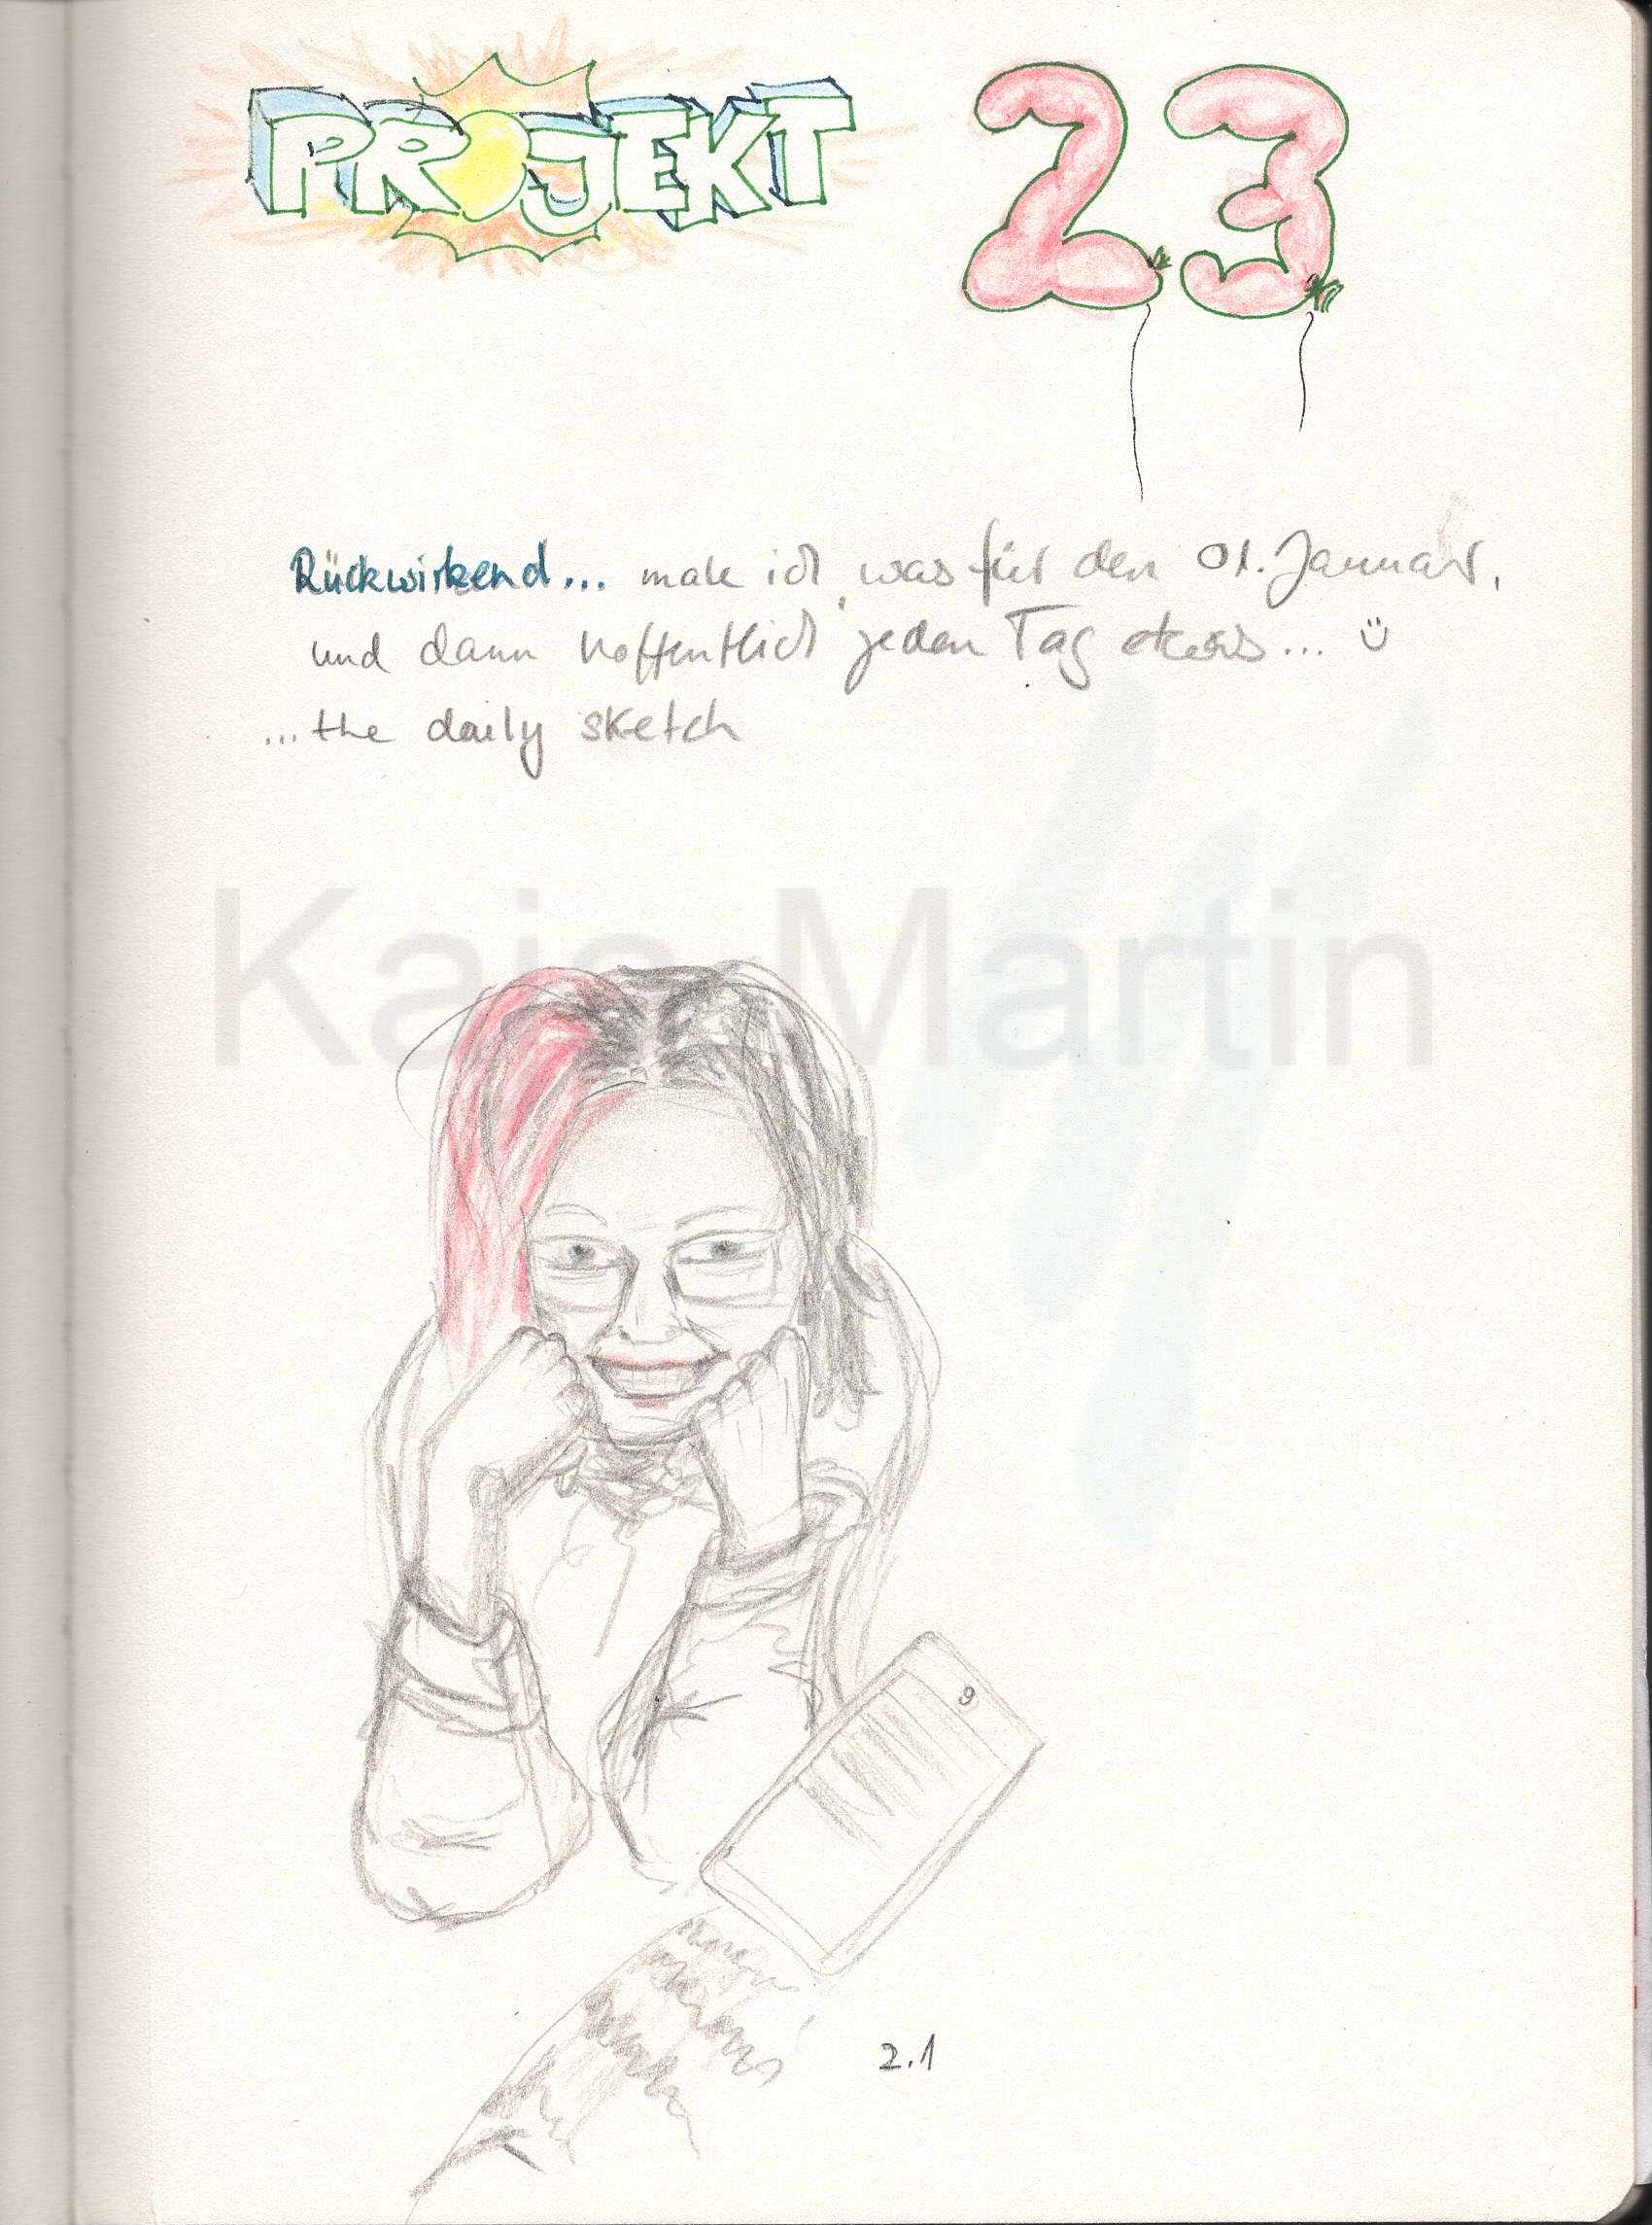 PROJEKT 23
Rückwirkend... male ich was für den 01. Januar,
und dann hoffentlich jeden Tag etwas... ü
...the daily sketch
Kaja Martin
9
2.1